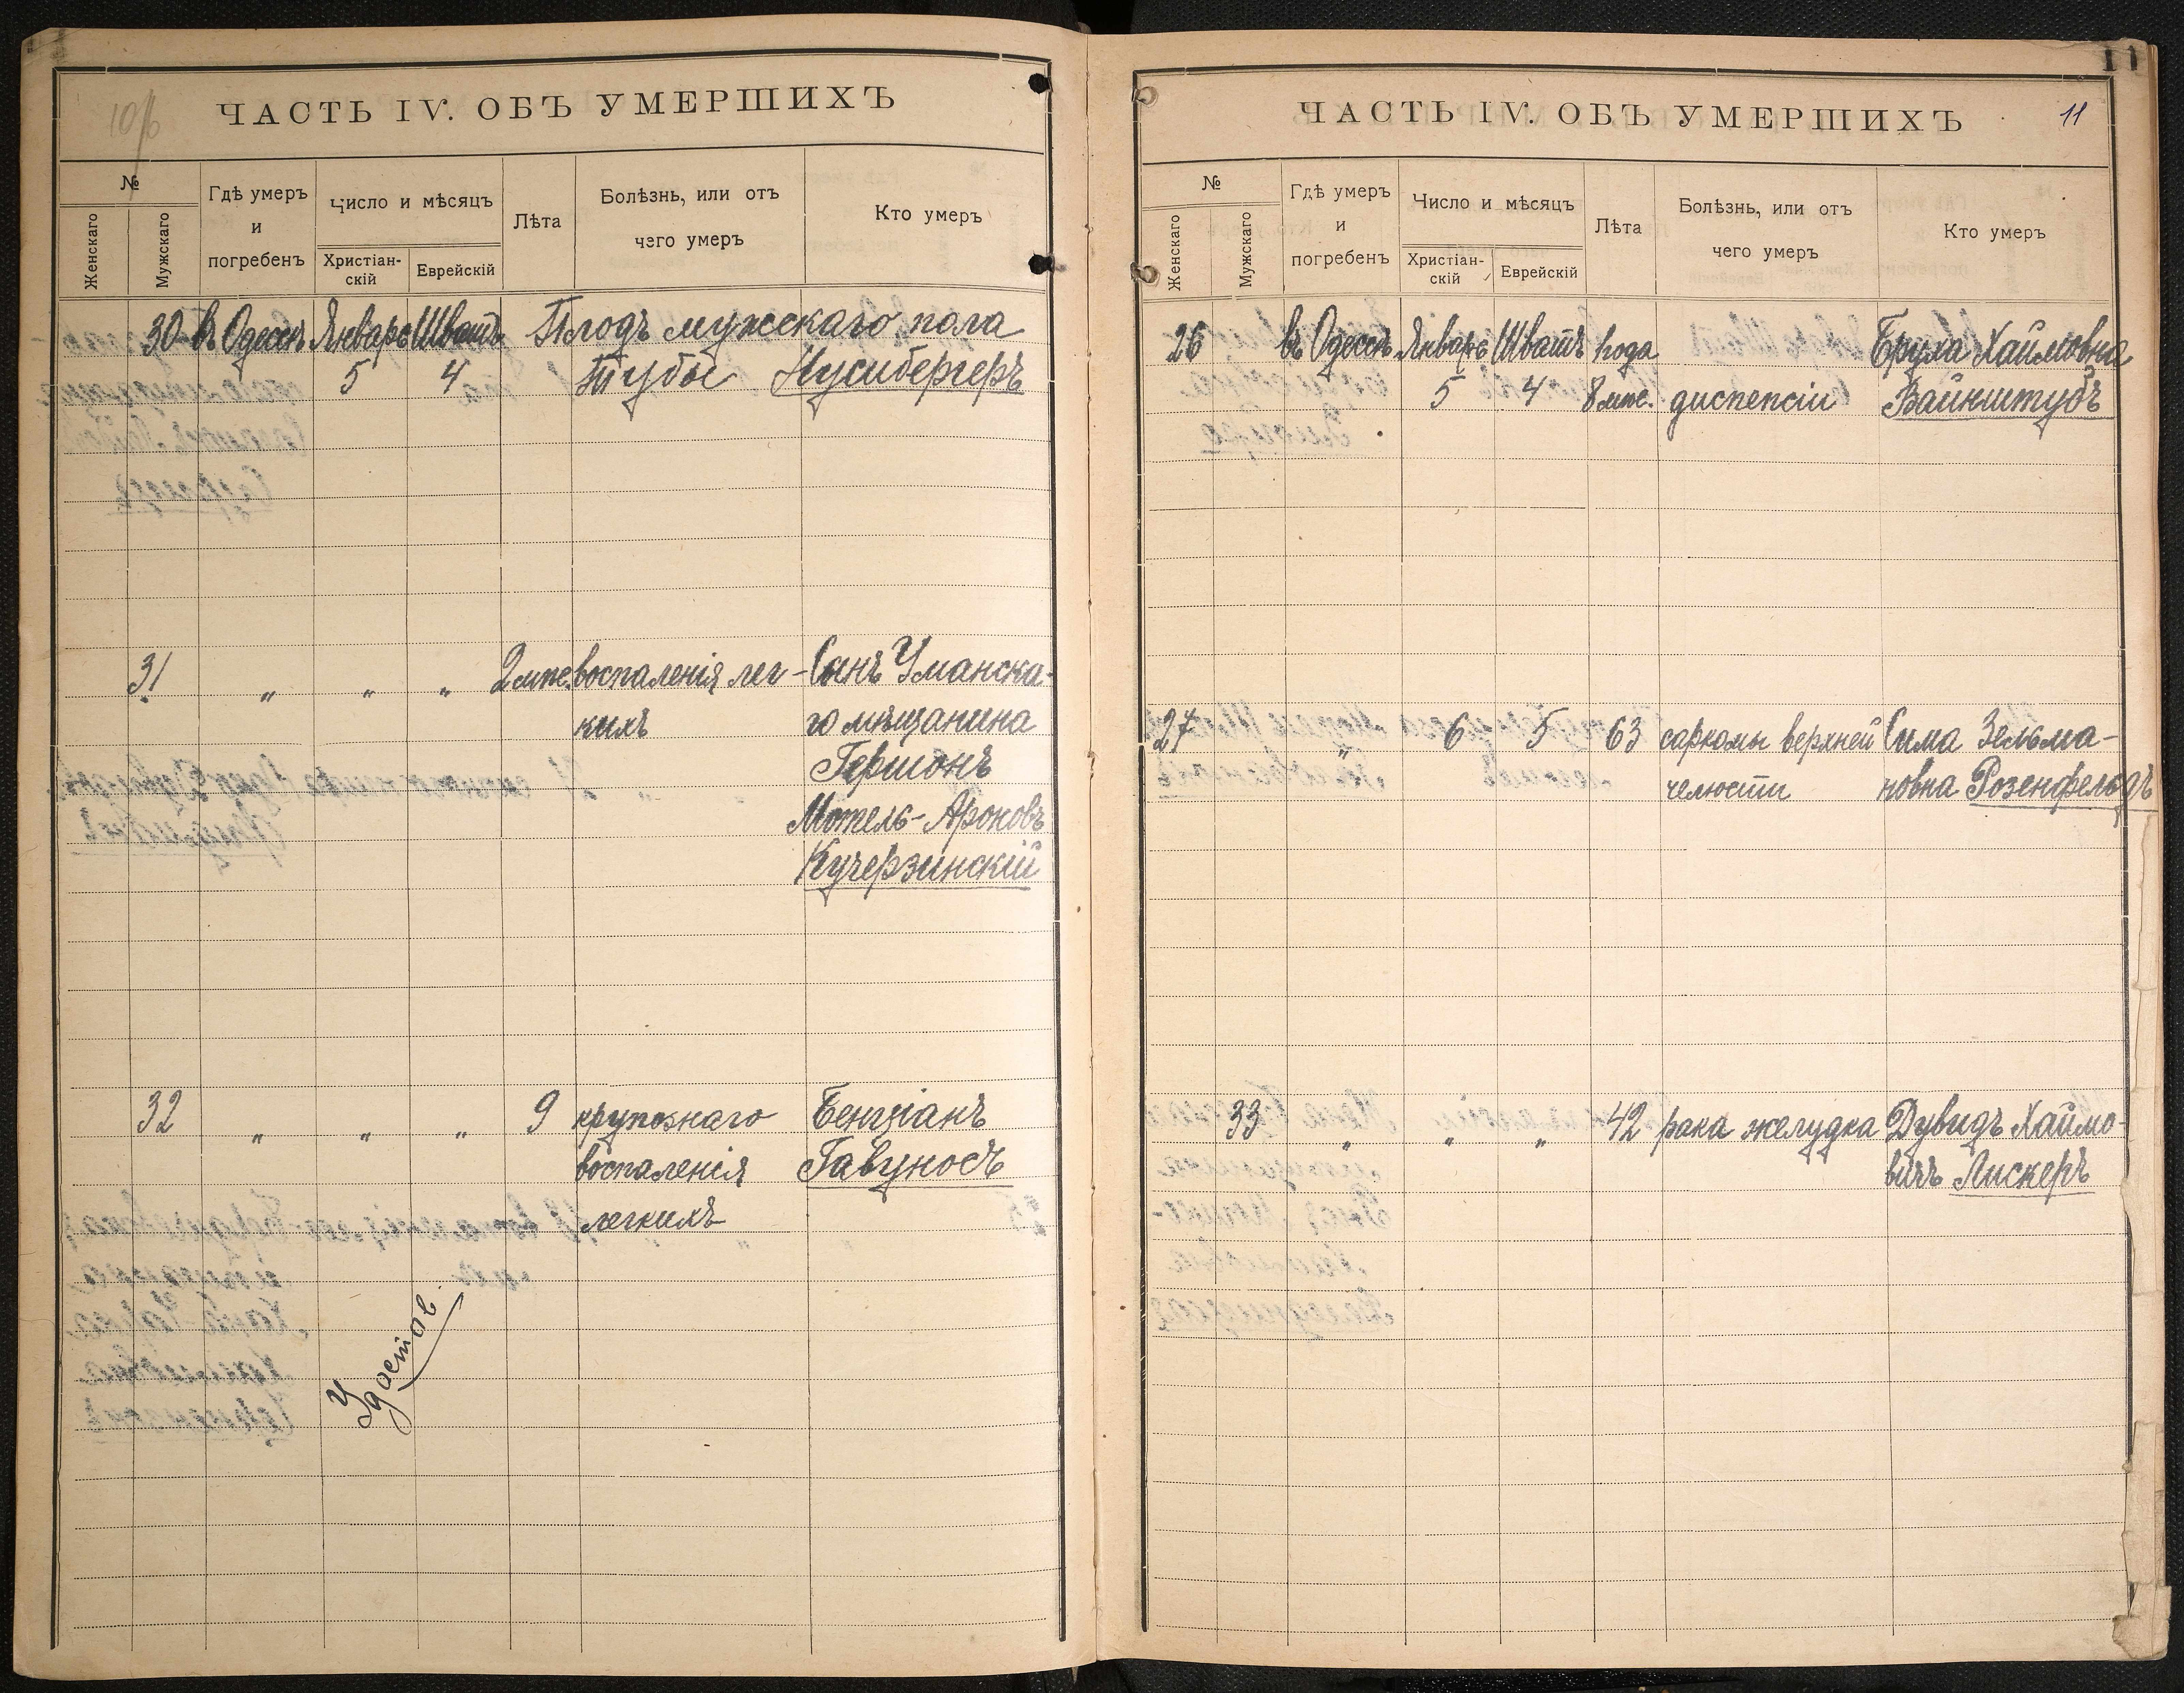 10/б
ЧАСТЬ IV. ОБЪ УМЕРШИХЪ
№
Женскаго
Мужскаго
Гдѣ умеръ
и
погребенъ
Число и мѣсяцъ
Христіан-
скій
Еврейскій
Лѣта
Болѣзнь, или отъ
чего умеръ
Кто умеръ
30 въ Одессѣ Январь Шватъ Плодъ мужскаго пола
5 4 Тубы Нусибергеръ
31 " " " 2 мѣс. воспаленія лег- Сынъ Уманска-
кихъ го мѣщанина
Гершонъ
Мотель-Ароновъ
Кучерзинскій
32 " " " 9 крупознаго Бенціанъ
воспаленія Гавуносъ
легкихъ
Удостов.
11
ЧАСТЬ IV. ОБЪ УМЕРШИХЪ 11
№
Женскаго
Мужскаго
Гдѣ умеръ
и
погребенъ
Число и мѣсяцъ
Христіан-
скій
Еврейскій
Лѣта
Болѣзнь, или отъ
чего умеръ
Кто умеръ
26 въ Одессѣ Январь Шватъ 1 года Бруха Хаймовна
5 4 8 мѣс. диспепсіи Вайнштубъ
27 " 6 5 63 саркомы верхней Сима Зельма-
челюсти новна Розенфельдъ
33 " " " 42 рака желудка Дувидъ Хаймо-
вичъ Лискеръ